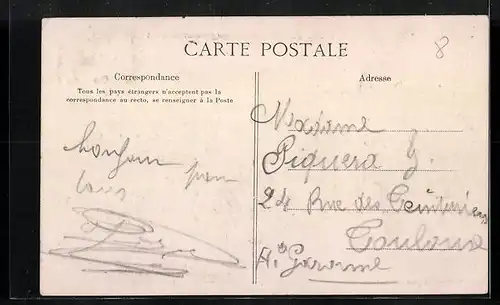 CARTE POSTALE
8
Correspondance
Tous les pays étrangers n'acceptent pas la
correspondance au recto, se renseigner à la Poste
Adresse
bonjour pour
tous
Madame
Piquera J.
24 Rue des
Toulouse
Hte Garonne